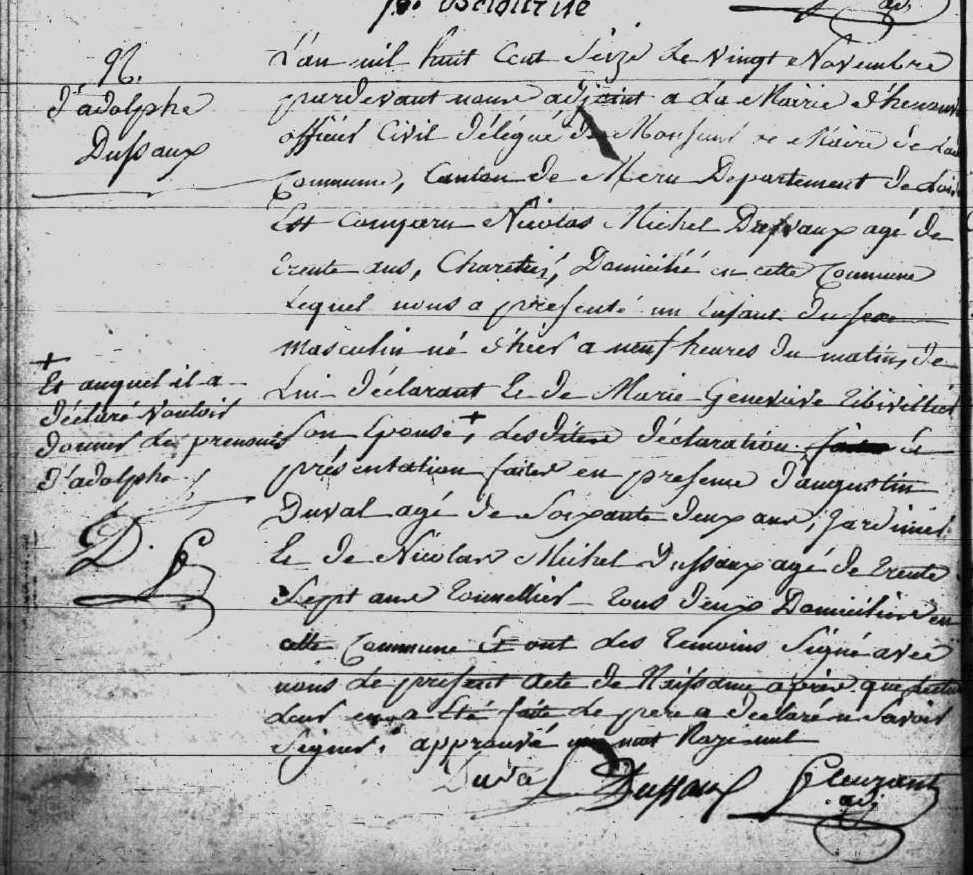 N.
d'adolphe
Dussaux
L'an mil huit Cent Seize Le vingt Novembre
pardevant nous adjoint a La Mairie d'henonvi
officier Civil délégué de Monsieur Le Maire de La
Commune, Canton de Meru Departement de Lois
Est Comparu Nicolas Michel Dussaux agé de
trente ans, Charetier, Domicilié en cette Commune
Lequel nous a présenté un Enfant du sexe
masculin né d'hier a neuf heures du matin, de
Lui déclarant Et de Marie Genevieve
Son Epouse, + Lesdites déclaration et
présentation faites en presence d'augustin
Duval agé de Soixante deux ans, Jardinier
Et de Nicolas Michel Dussaux agé de trente
Sept ans tonnellier tous deux Domiciliés en
cette Commune et ont des temoins Signé avec
nous Le present acte de Naissance après que Lecture
Leur en a Eté faite Le pere a declaré ne Savoir
Signer. approuvé mot Raze nul
+
Et auquel il a
déclaré vouloir
donner Le prenoms
d'adolphe
D.
Duval Dussaux
adj.